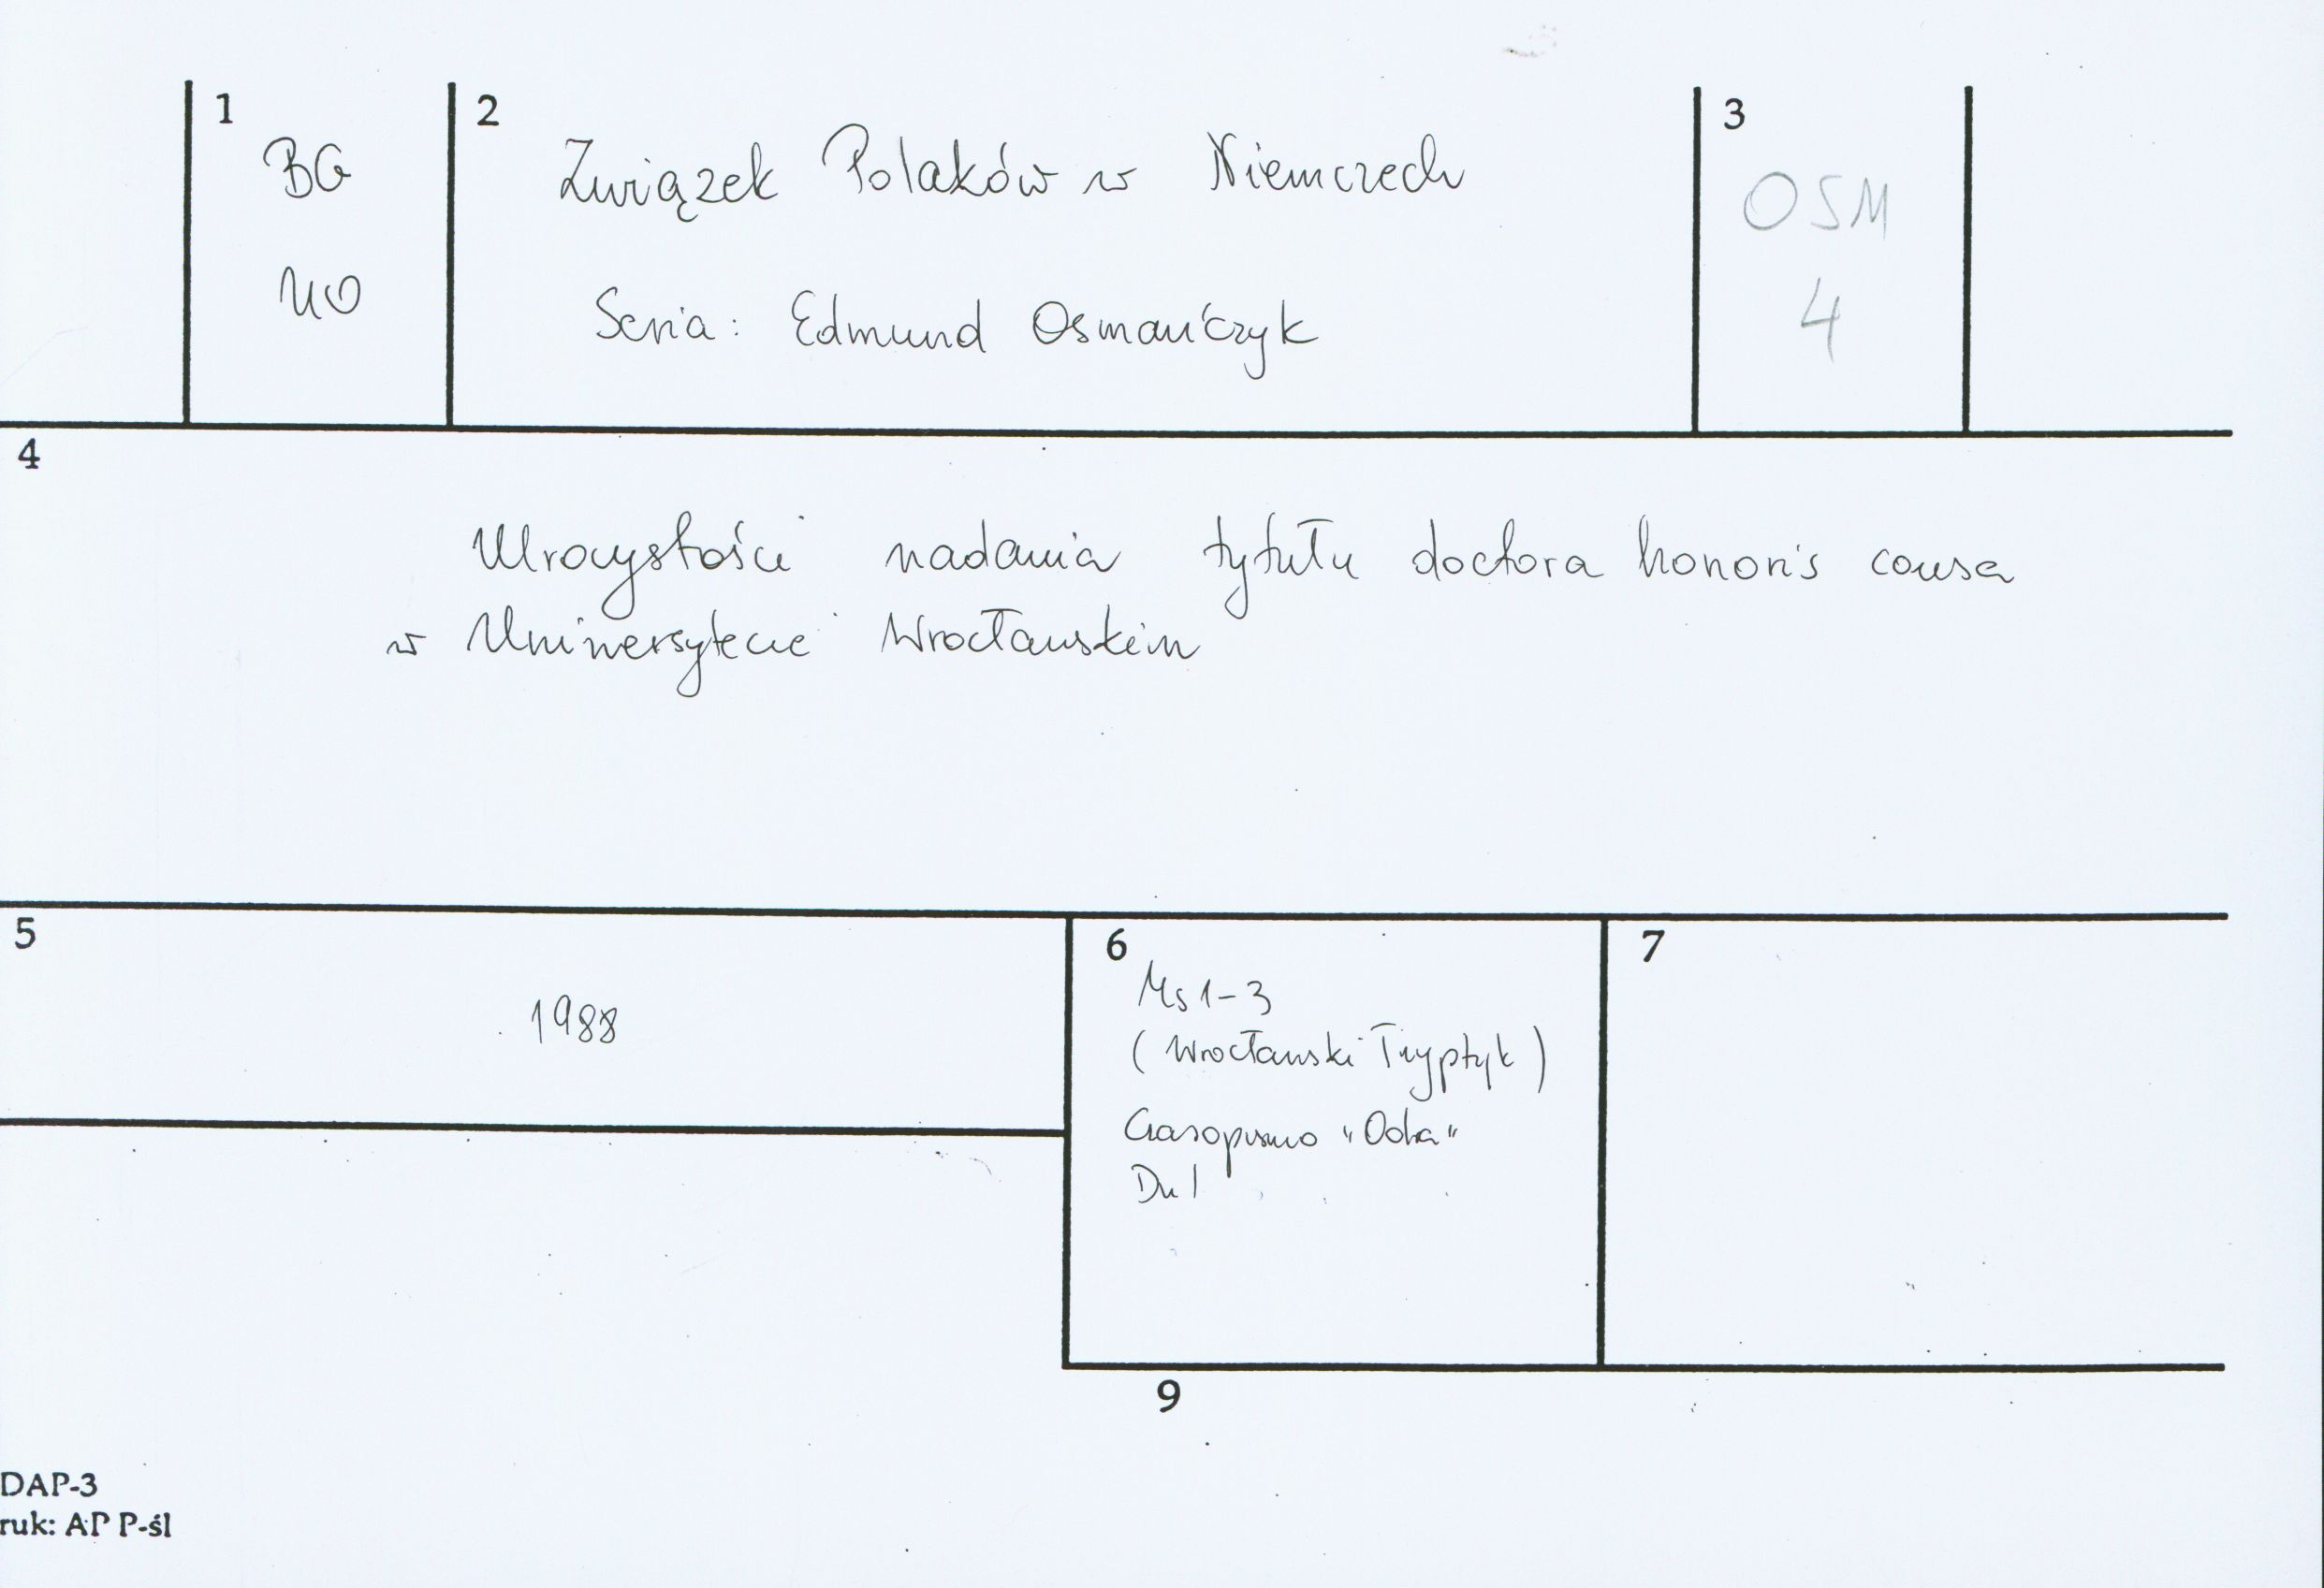 1
BG
UO
2
Związek Polaków w Niemczech
Seria: Edmund Osmańczyk
3
OSM
4
4
Uroczystości nadania tytułu doctora honoris causa
w Uniwersytecie Wrocławskim
5
1988
6
Ms 1-3
(Wrocławski Tryptyk)
Czasopismo "Odra"
Dn 1
7
9
DAP-3
ruk: AP P-śl